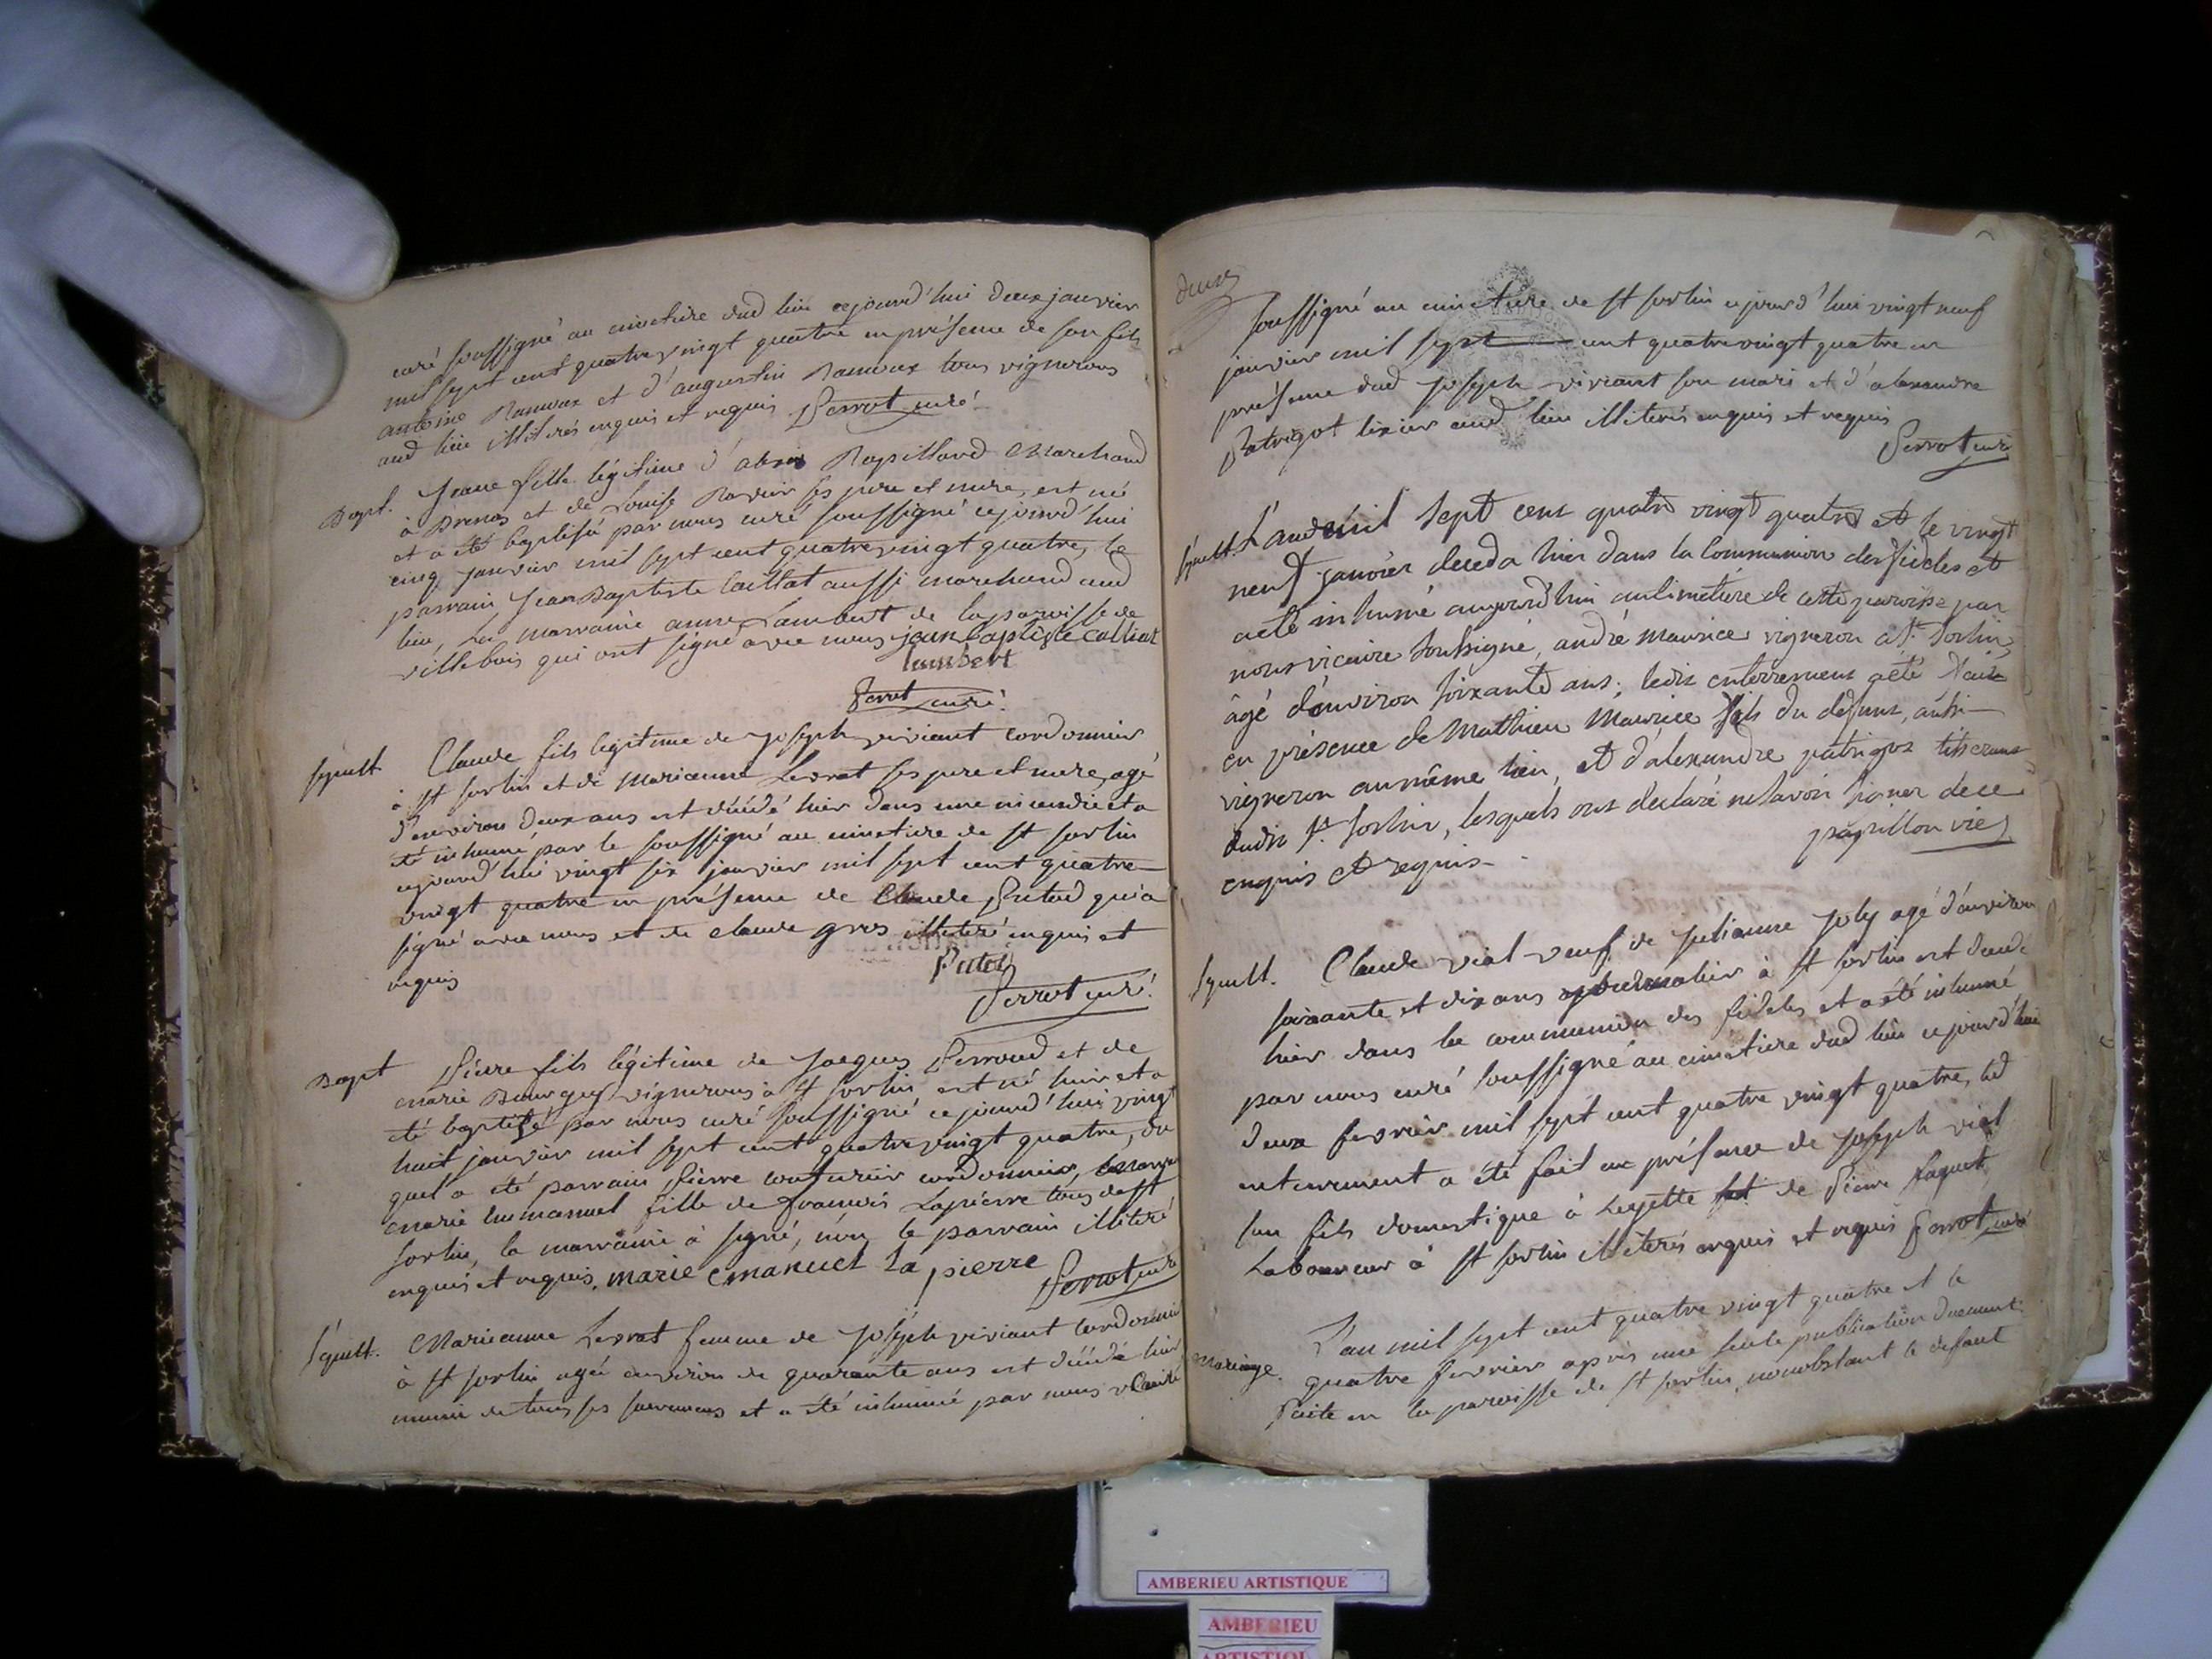 curé soussigné au cimetiere dud lieu cejourd'hui deux janvier
mil sept cent quatre vingt quatre en présence de son fils
antoine et d'augustin tous vignerons
aud lieu illiterés enquis et requis Perrot curé
Bapt. Jeanne fille légitime d' Rapillard Marchand
à et de Louise Ravier ses pere et mere, est né
et a été baptisé par nous curé soussigné cejourd'hui
cinq janvier mil sept cent quatre vingt quatre, le
parrain Jean Baptiste Caillat aussi marchand aud
lieu, La marraine anne Lambert de la paroisse de
villebois qui ont signé avec nous jean baptiste
lambert
Perrot curé.
sepult. Claude fils legitime de joseph viviant cordonnier
à St sorlin et de Marianne Levrat ses pere et mere, agé
d'environ deux ans est décédé hier dans une incendie et a
été inhumé par le soussigné au cimetiere de St sorlin
cejourd'hui vingt six janvier mil sept cent quatre
vingt quatre en présence de Claude qui a
signé avec nous et de claude gros illiteré enquis et
requis
Perrot curé.
Bapt Pierre fils légitime de Jacques Perroud et de
marie vignerons à St sorlin est né hier et a
été baptisé par nous curé soussigné cejourd'hui vingt
huit janvier mil sept cent quatre vingt quatre, du
quel a été parrain Pierre couturier cordonnier, marraine
marie emmanuel fille de françois Lapierre tous de St
sorlin, la marraine à signé, non le parrain illiteré
enquis et requis. marie emanuel La pierre
Perrot curé
Sepult. Marieanne Levrat femme de joseph viviant cordonnier
à St sorlin agée environ de quarante ans est décédé hier
munie de tous ses sacremens et a été inhumée par nous
deux
soussigné au cimetiere de St sorlin cejourd'hui vingt neuf
janvier mil sept cent quatre vingt quatre en
présence dud joseph viviant son mari et d'alexandre
Patrigot tixier aud lieu illiterés enquis et requis
Perrot curé
sepult. L'an mil sept cens quatre vingt quatre et le vingt
neuf janvier deceda hier dans la Communion des fideles et
a eté inhumé aujourd'hui au cimetiere de cette paroisse par
nous vicaire soussigné, andré maurice vigneron a St Sorlin
âgé d'environ soixante ans; ledit enterrement a eté fait
en présence de Mathieu Maurice fils du defunt, aussi
vigneron au même lieu, et d'alexandre patrigot tisserant
dudit St Sorlin, lesquels ont declaré ne savoir signer de ce
enquis et requis.
papillon vic
Sepult. Claude vial veuf de Julianne Joly agé d'environ
soixante et dix ans à St sorlin est decedé
hier dans la communion des fideles et a été inhumé
par nous curé soussigné au cimetiere dud lieu cejourd'hui
deux fevrier mil sept cent quatre vingt quatre, led
enterrement a été fait en présence de joseph vial
son fils domestique à Leyette de Pierre
Laboureur à St sorlin illiterés enquis et requis Perrot curé
Mariage. L'an mil sept cent quatre vingt quatre et le
quatre fevrier après une seule publication duement
faite en la paroisse de St sorlin, nonobstant le defaut
AMBERIEU ARTISTIQUE
AMBERIEU